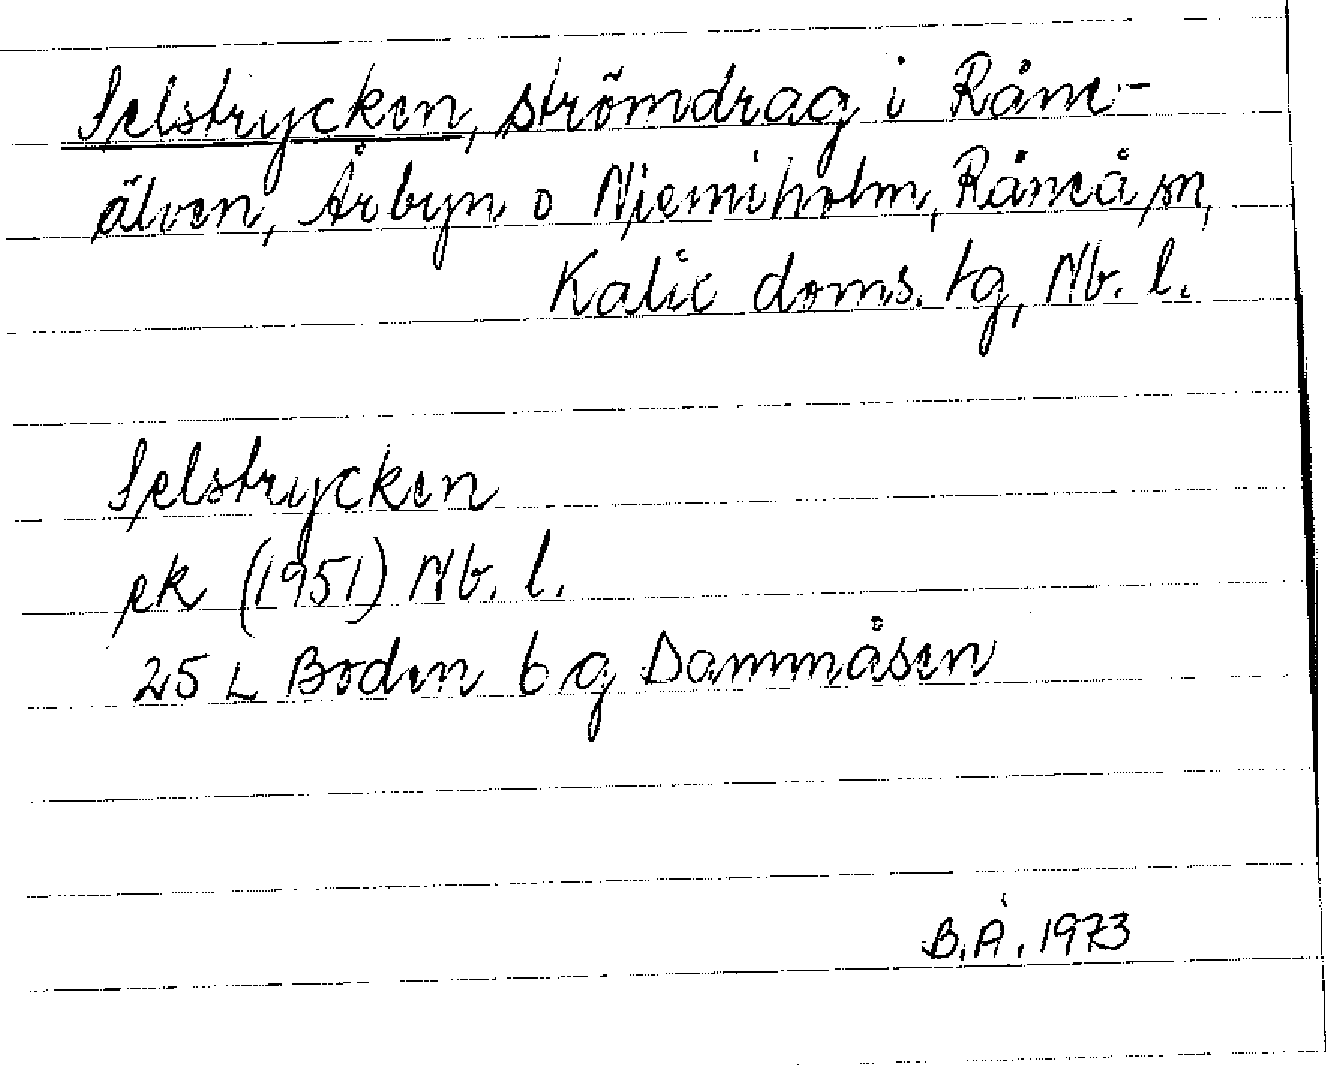 Selstrycken, strömdrag i Råne-
älven, Årbyn o Niemiholm, Råneå sn,
Kalix doms. tg, Nb. l.
Selstrycken
ek (1951) Nb. l.
25 L Boden 6 g Dammåsen
B.Å. 1973